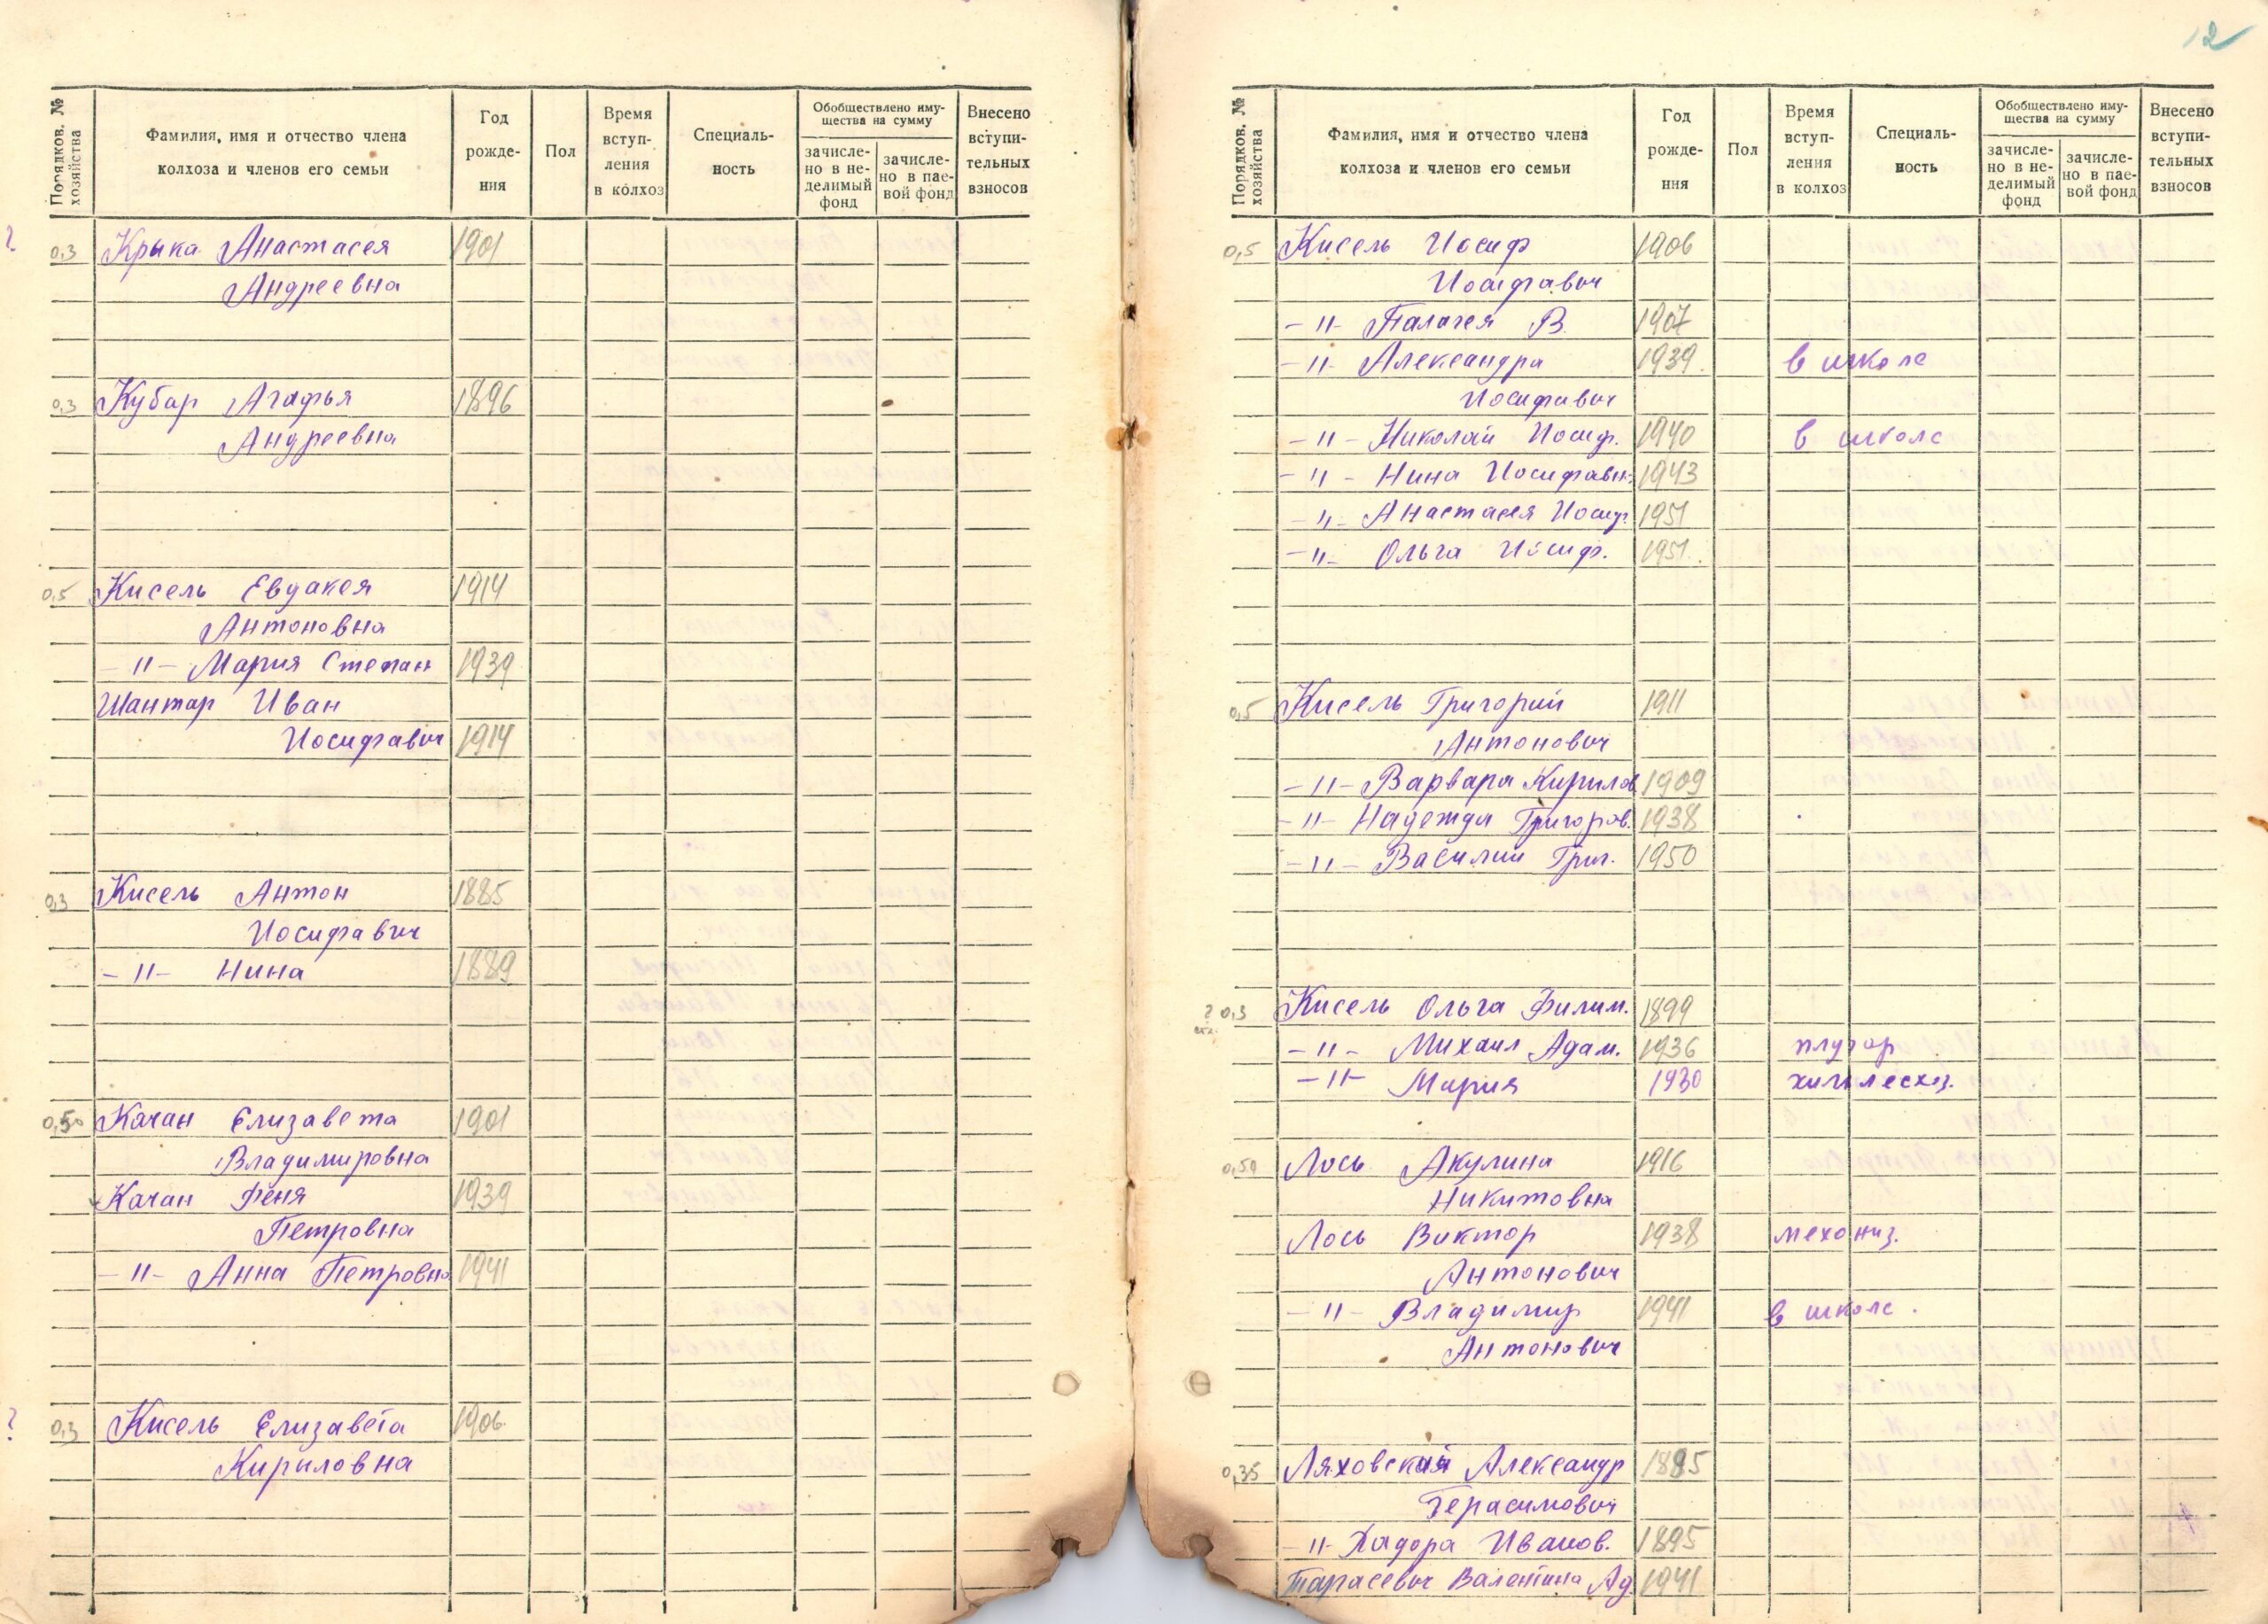 12
Порядков. № хозяйства
Фамилия, имя и отчество члена колхоза и членов его семьи
Год рожде-ния
Пол
Время вступ-ления в колхоз
Специаль-ность
Обобществлено иму-щества на сумму
зачисле-но в не-делимый фонд
зачисле-но в пае-вой фонд
Внесено вступи-тельных взносов
? 0,3 Крыка Анастасея 1901
Андреевна
0,3 Кубар Агафья 1896
Андреевна
0,5 Кисель Евдакея 1914
Антоновна
-"- Мария Степан 1939
Шантар Иван
Иосифавич 1914
0,3 Кисель Антон 1885
Иосифавич
-"- Нина 1889
0,50 Качан Елизавета 1901
Владимировна
Качан Феня 1939
Петровна
-"- Анна Петровна 1941
? 0,3 Кисель Елизавета 1906
Кириловна
Порядков. № хозяйства
Фамилия, имя и отчество члена колхоза и членов его семьи
Год рожде-ния
Пол
Время вступ-ления в колхоз
Специаль-ность
Обобществлено иму-щества на сумму
зачисле-но в не-делимый фонд
зачисле-но в пае-вой фонд
Внесено вступи-тельных взносов
0,5 Кисель Иосиф 1906
Иосифавич
-"- Палагея В. 1907
-"- Александра 1939 в школе
Иосифавич
-"- Николай Иосиф. 1940 в школе
-"- Нина Иосифавн. 1943
-"- Анастасея Иосиф. 1951
-"- Ольга Иосиф. 1951
0,5 Кисель Григорий 1911
Антонович
-"- Варвара Кирилов. 1909
-"- Надежда Григоров. 1938
-"- Василий Григ. 1950
? 0,3 Кисель Ольга Филим. 1899
-"- Михаил Адам. 1936 плугар
-"- Мария 1930
0,50 Лось Акулина 1916
Никитовна
Лось Виктор 1938 механиз.
Антонович
-"- Владимир 1941 в школе.
Антонович
0,35 Ляховский Александр 1885
Герасимович
-"- Хадора Иванов. 1895
Тарасевич Валентина Ад. 1941